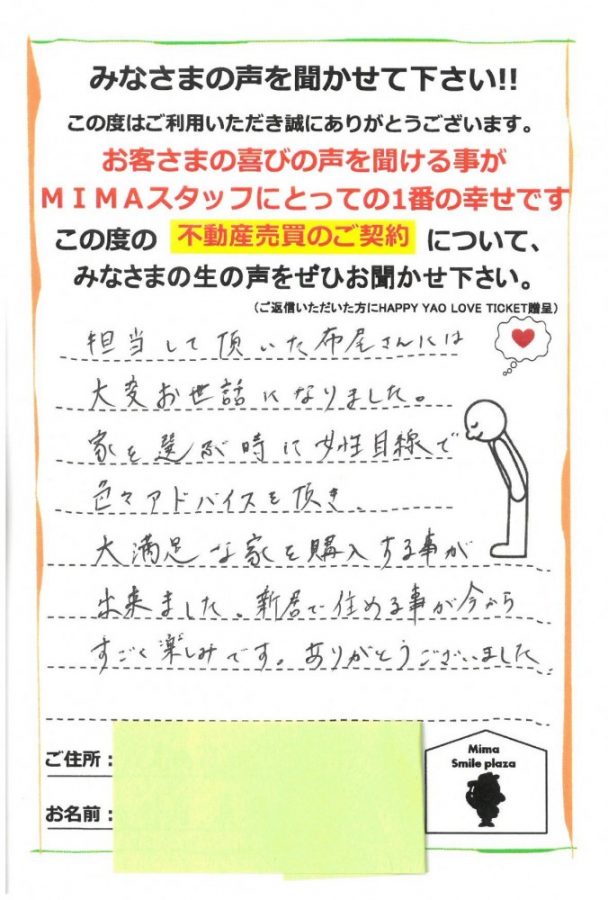 みなさまの声を聞かせて下さい!!
この度はご利用いただき誠にありがとうございます。
お客さまの喜びの声を聞ける事が
MIMAスタッフにとっての1番の幸せです
この度の 不動産売買のご契約 について、
みなさまの生の声をぜひお聞かせ下さい。
(ご返信いただいた方にHAPPY YAO LOVE TICKET贈呈)
担当して頂いた布尾さんには
大変お世話になりました。
家を選ぶ時に女性目線で
色々アドバイスを頂き、
大満足な家を購入する事が
出来ました。新居で住める事が今から
すごく楽しみです。ありがとうございました。
ご住所:
お名前:
Mima
Smile plaza